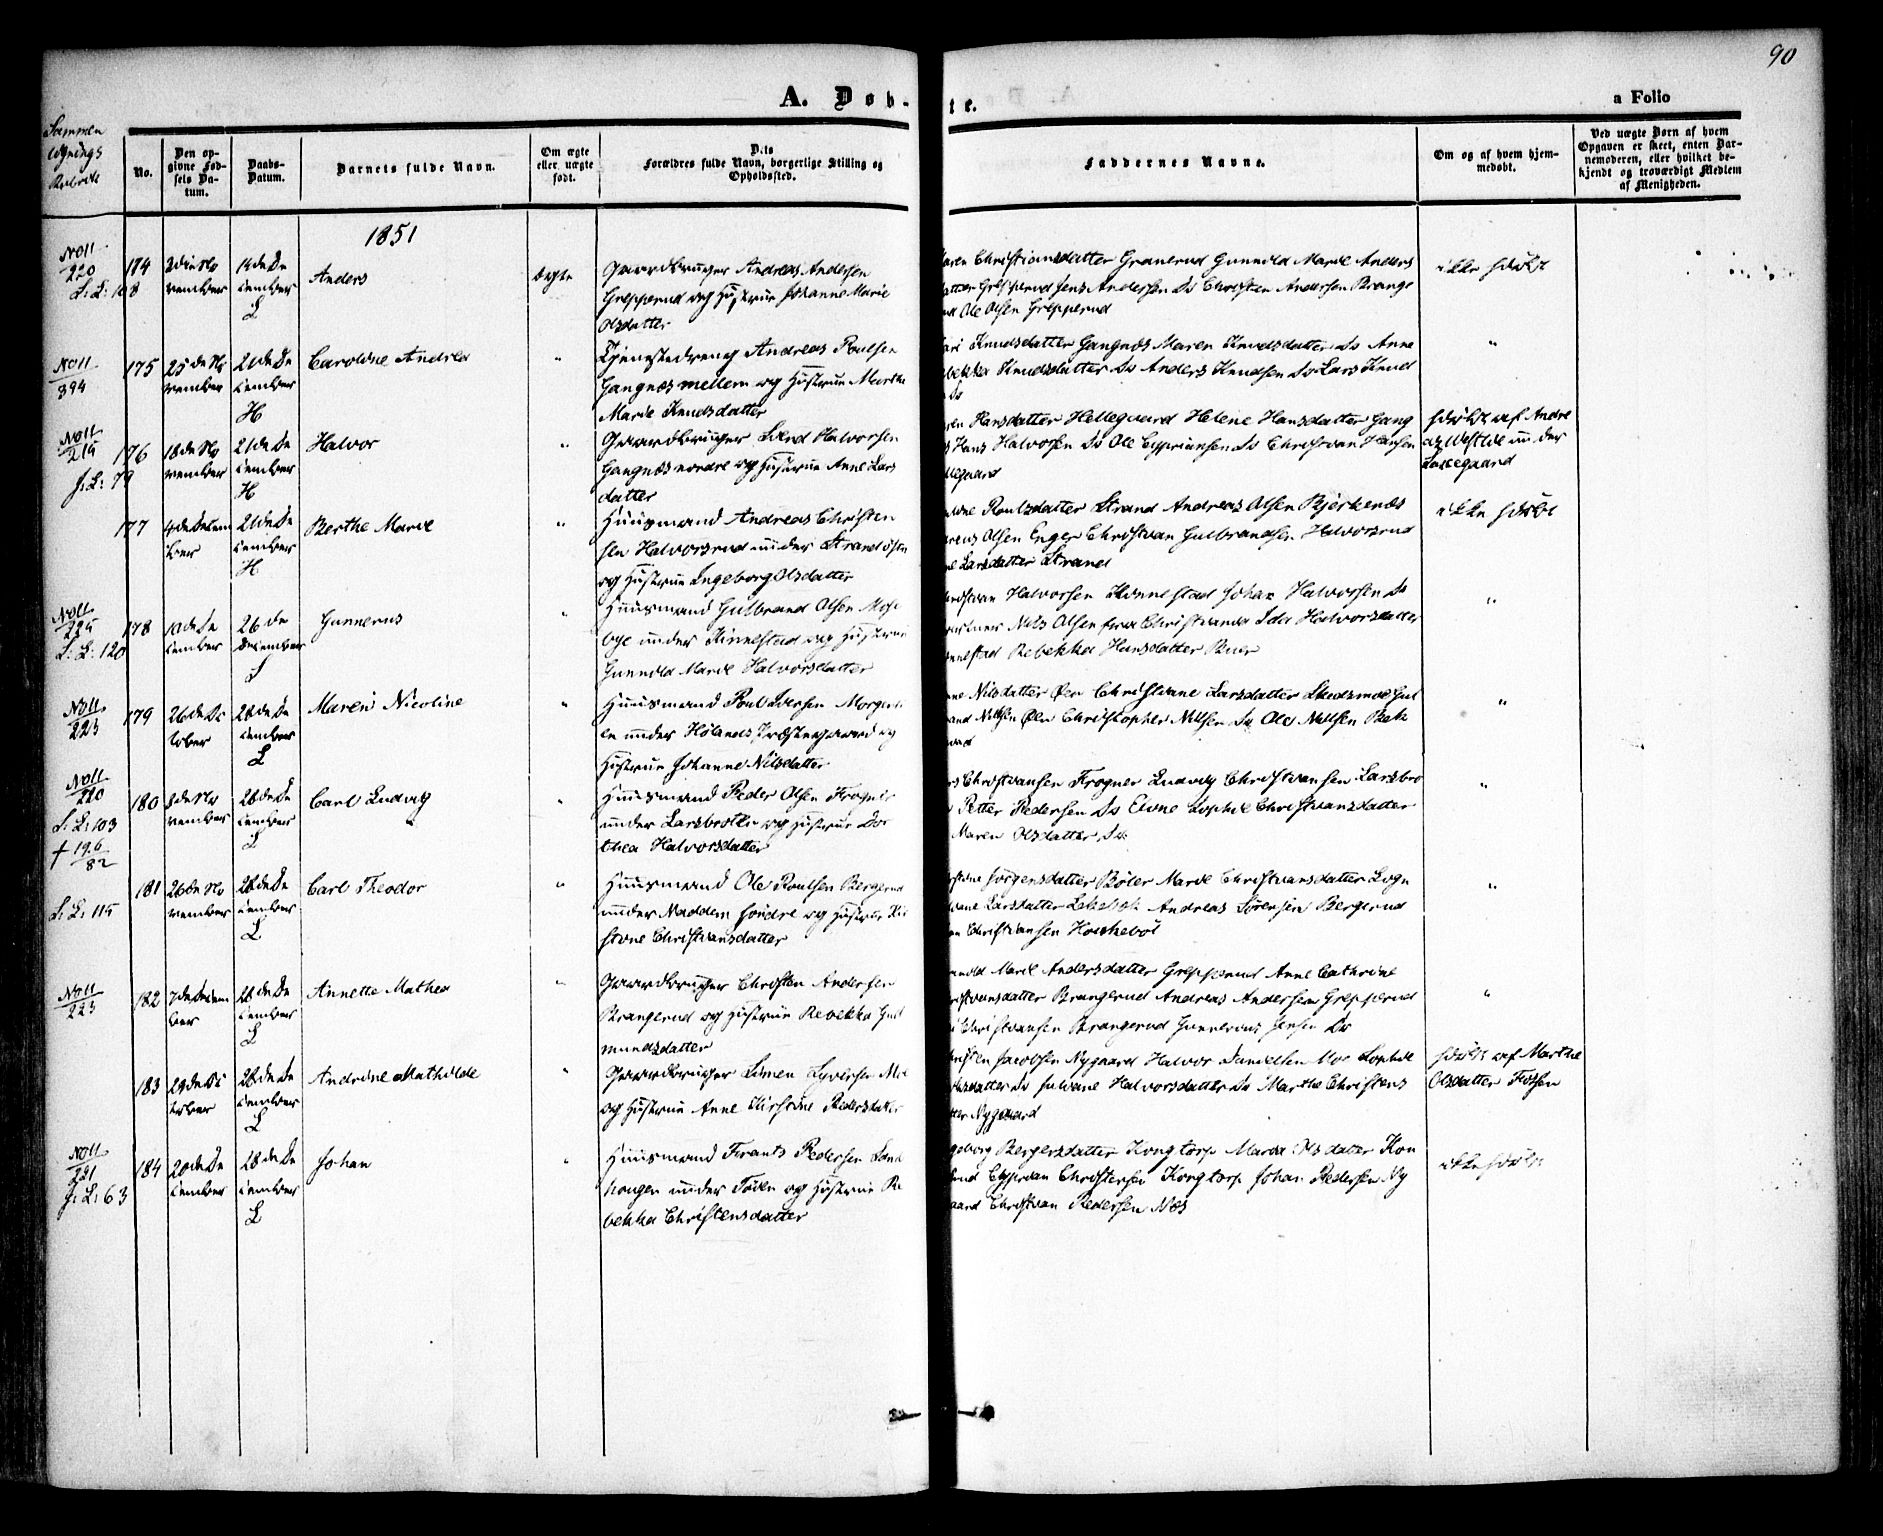 90
A. Døb-
te.
a Folio
Sammen
lignings
Rubrik
No.
Den op-
givne Fød-
sels Da-
tum.
Daabs-
Datum.
Barnets fulde Navn.
Om ægte
eller uægte
født.
Dets
Forældres fulde Navn, borgerlige Stilling og
Opholdssted.
Faddernes Navne.
Om og af hvem hjem-
medøbt.
Ved uægte Børn af hvem
Opgaven er skeet, enten Bar-
nemoderen, eller hvilket be-
kjendt og troværdigt Medlem
af Menigheden.
1851
No 11
220
L: L: 108
174
vember
14 de De
cember
L
Anders
ægte
Gaardbruger Andreas Andersen
Grepperud og Hustrue Johanne Marie
Olsdatter
Maren Christiansdatter Granerud Gunnild Marie Anders
datter Grepperud Jens Andersen Do Christen Andersen Brange
rud Ole Olsen Grepperud
ikke hjdøbt
No 11
394
175
25 de No
vember
21 de De
cember
H
Caroline Andrea
"
Tjenestedreng Andreas Poulsen
Gangnæs mellem og Hustrue Marthe
Marie Knudsdatter
Kari Knudsdatter Gangnæs Maren Knudsdatter Do Anne
Rebekka Knudsdatter Do Anders Knudsen Do Lars Knud
Do
"
No 11
215
J: L: 79
176
18 de No
vember
21 de De
cember
H
Halvor
"
Gaardbruger Siverd Halvorsen
Gangnæs nordre og Hustrue Anne Lars
datter
Hansdatter Hellegaard Helene Hansdatter Gang
Hans Halvorsen Do Ole Cypriansen Do Christian Hansen
Hellegaard
hjdøbt af Andre
as Westlie under
Lassegaard
177
4 de Decem
ber
21 de De
cember
H
Berthe Marie
"
Huusmand Andreas Christen
sen Halvorsrud under Strand østre
og Hustrue Ingeborg Olsdatter
Poulsdatter Strand Andreas Olsen Bjerkenæs
Olsen Enger Christian Gulbrandsen Halvorsrud
Larsdatter Strand
ikke hjdøbt
No 11
225
L: L: 120
178
10 de De
cember
26 de
December
Gunnerus
"
Huusmand Gulbrand Olsen Mose
bye under Kinnestad og Hustrue
Gunnild Marie Halvorsdatter
Christian Halvorsen Kinnestad Johan Halvorsen Do
Nils Olsen fra Christiania Ida Halvorsdatter
Kinnestad Rebekka Hansdatter Buer
"
No 11
223
179
26 de Oc
tober
28 de De
cember
L
Maren Nicoline
"
Huusmand Poul Iversen Morgen
under Hølands Præstegaard og
Hustrue Johanne Nilsdatter
Nilsdatter Øen Christiane Larsdatter Skedsmoe Gul
brand Nilsen Øen Christopher Nilsen Do Ole Nilsen Bek
"
No 11
220
L: L: 103
† 19.6
82
180
8 de No
vember
28 de De
cember
L
Carl Ludvig
"
Huusmand Peder Olsen Frogner
under Larsbraaten og Hustrue Dor
thea Halvorsdatter
Christiansen Frogner Ludvig Christiansen Larsbra
Petter Pedersen Do Eline Sophie Christiansdatter
Maren Olsdatter Do
"
L: L: 115
181
26 de No
vember
28 de De
cember
L
Carl Theodor
"
Huusmand Ole Poulsen Bergerud
under Naddem søndre og Hustrue Kir
stine Christiansdatter
Jørgensdatter Bøler Marie Christiansdatter Logn
Larsdatter Andreas Sørensen Bergerud
Christiansen Houkebøl
"
No 11
223
182
7 de Decem
ber
28 de De
cember
L
Annette Mathea
"
Gaardbruger Christen Andersen
Brangerud og Hustrue Rebekka Gul
mundsdatter
Gunnild Marie Andersdatter Grepperud Anne Cathrine
Christiansdatter Brangerud Andreas Andersen Grepperud
Christiansen Brangerud Gunnerius Jensen Do
"
183
29 de Oc
tober
28 de De
cember
L
Andrine Mathilde
"
Gaardbruger Simen Syversen Moe
og Hustrue Anne Kirstine Pedersdatter
Christen Jacobsen Nygaard Halvor Danielsen Moe Sophie
Olsdatter Do Juliane Halvorsdatter Do Marthe Christens
datter Nygaard
hjdøbt af Marthe
Olsdatter Fossen
No 11
221
J: L: 63
184
20 de De
cember
28 de De
cember
L
Johan
"
Huusmand Frants Pedersen Sand
hougen under Toven og Hustrue Re
bekka Christensdatter
Ingeborg Bergersdatter Kongtorp Maria Olsdatter Kon
rud Cyprian Christensen Kongtorp Johan Pedersen Ny
gaard Christian Pedersen Næs
ikke hjdøbt